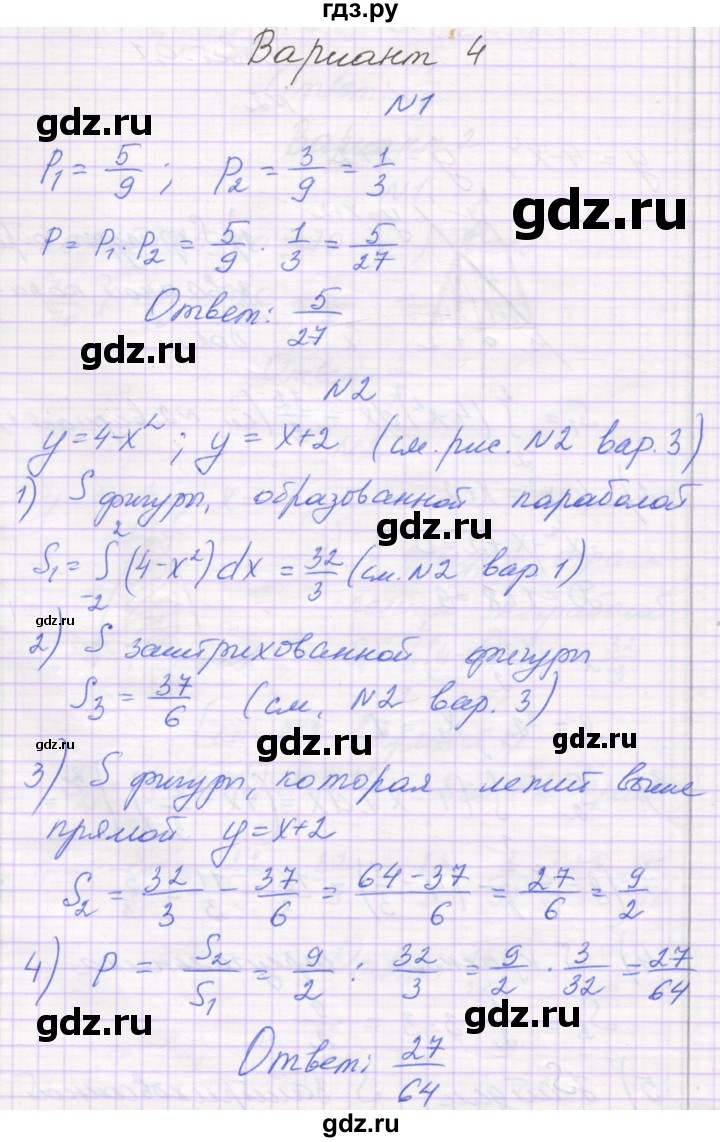 гдз.ру
Вариант 4
gdz.ru
N1
P₁ = 5/9 ; P₂ = 3/9 = 1/3
gdz.ru
P = P₁ · P₂ = 5/9 · 1/3 = 5/27
Ответ: 5/27
gdz.ru
N2
y = 4-x² ; y = x+2 (см. рис. N2 вар. 3)
1) S фигуры, образованной параболой
gdz.ru
S₁ = ∫₋₂² (4-x²) dx = 32/3 (см. N2 вар 1)
gdz.ru
2) S заштрихованной фигуры
S₃ = 37/6 (см. N2 вар. 3)
gdz.ru
gdz.ru
gdz.ru
3) S фигуры, которая лежит выше
прямой y = x+2
S₂ = 32/3 - 37/6 = (64-37)/6 = 27/6 = 9/2
4) P = S₂/S₁ = 9/2 : 32/3 = 9/2 · 3/32 = 27/64
gdz.ru
gdz.ru
Ответ: 27/64
gdz.ru